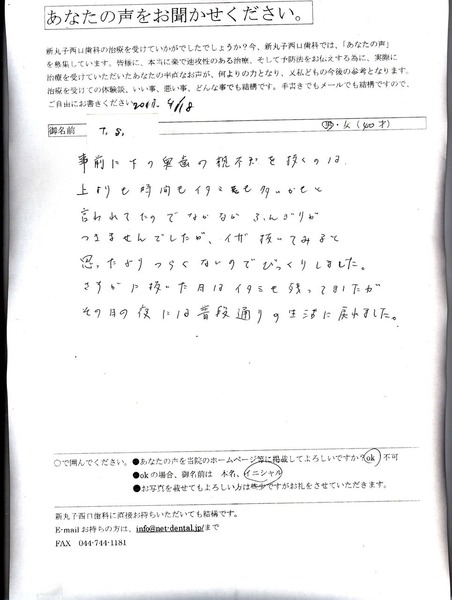 あなたの声をお聞かせください。
新丸子西口歯科の治療を受けていかがでしたでしょうか?今、新丸子西口歯科では、「あなたの声」
を募集しています。皆様に、本当に楽で速攻性のある治療、そして予防法をお伝えする為に、実際に
治療を受けていただいたあなたの率直なお声が、何よりの力となり、又私どもの今後の参考となります。
治療を受けての体験談、いい事、悪い事、どんな事でも結構です。手書きでもメールでも結構ですので、
ご自由にお書きください 4/18
御名前 T. S. 男・女(400才)
事前に下の奥歯の親不知を抜くのは
上よりも時間もイタミも多いかもと
言われてたのでなかなかふんぎりが
つきませんでしたが、イザ抜いてみると
思ったよりつらくないのでびっくりしました。
さすがに抜いた日はイタミも残ってましたが
その日の夜には普段通りの生活に戻れました。
○で囲んでください。●あなたの声を当院のホームページ等に掲載してよろしいですか?ok 不可
●okの場合、御名前は 本名、イニシャル
●お写真を載せてもよろしい方は些少ですがお礼をさせていただきます。
新丸子西口歯科に直接お持ちいただいても結構です。
E-mailお持ちの方は、info@net-dental.jp/まで
FAX 044-744-1181